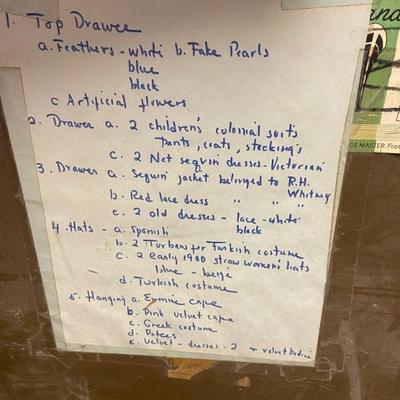 1. Top Drawer
a. Feathers - white b. Fake Pearls
blue
black
c Artificial flowers
2. Drawer a. 2 children's colonial suits
Pants, coats, stockings
c. 2 Net sequin dresses - Victorian
3. Drawer a. Sequin jacket belonged to R.H. Whitney
b. Red lace dress " " "
c. 2 old dresses - lace - white
black
4 Hats - a. Spanish
b. 2 Turbans for Turkish costume
c. 2 early 1900 straw women's hats
blue - beige
d. Turkish costume
5. Hanging a. Ermine cape
b. Pink velvet cape
c. Greek costume
d.
e. Velvet - dresses - 2 + velvet bodice
GE MASTER, Foo